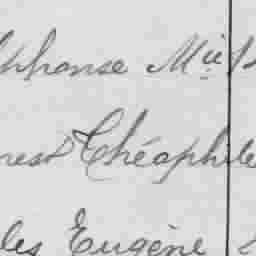 lphonse Mie
nest Théophile
les Eugène